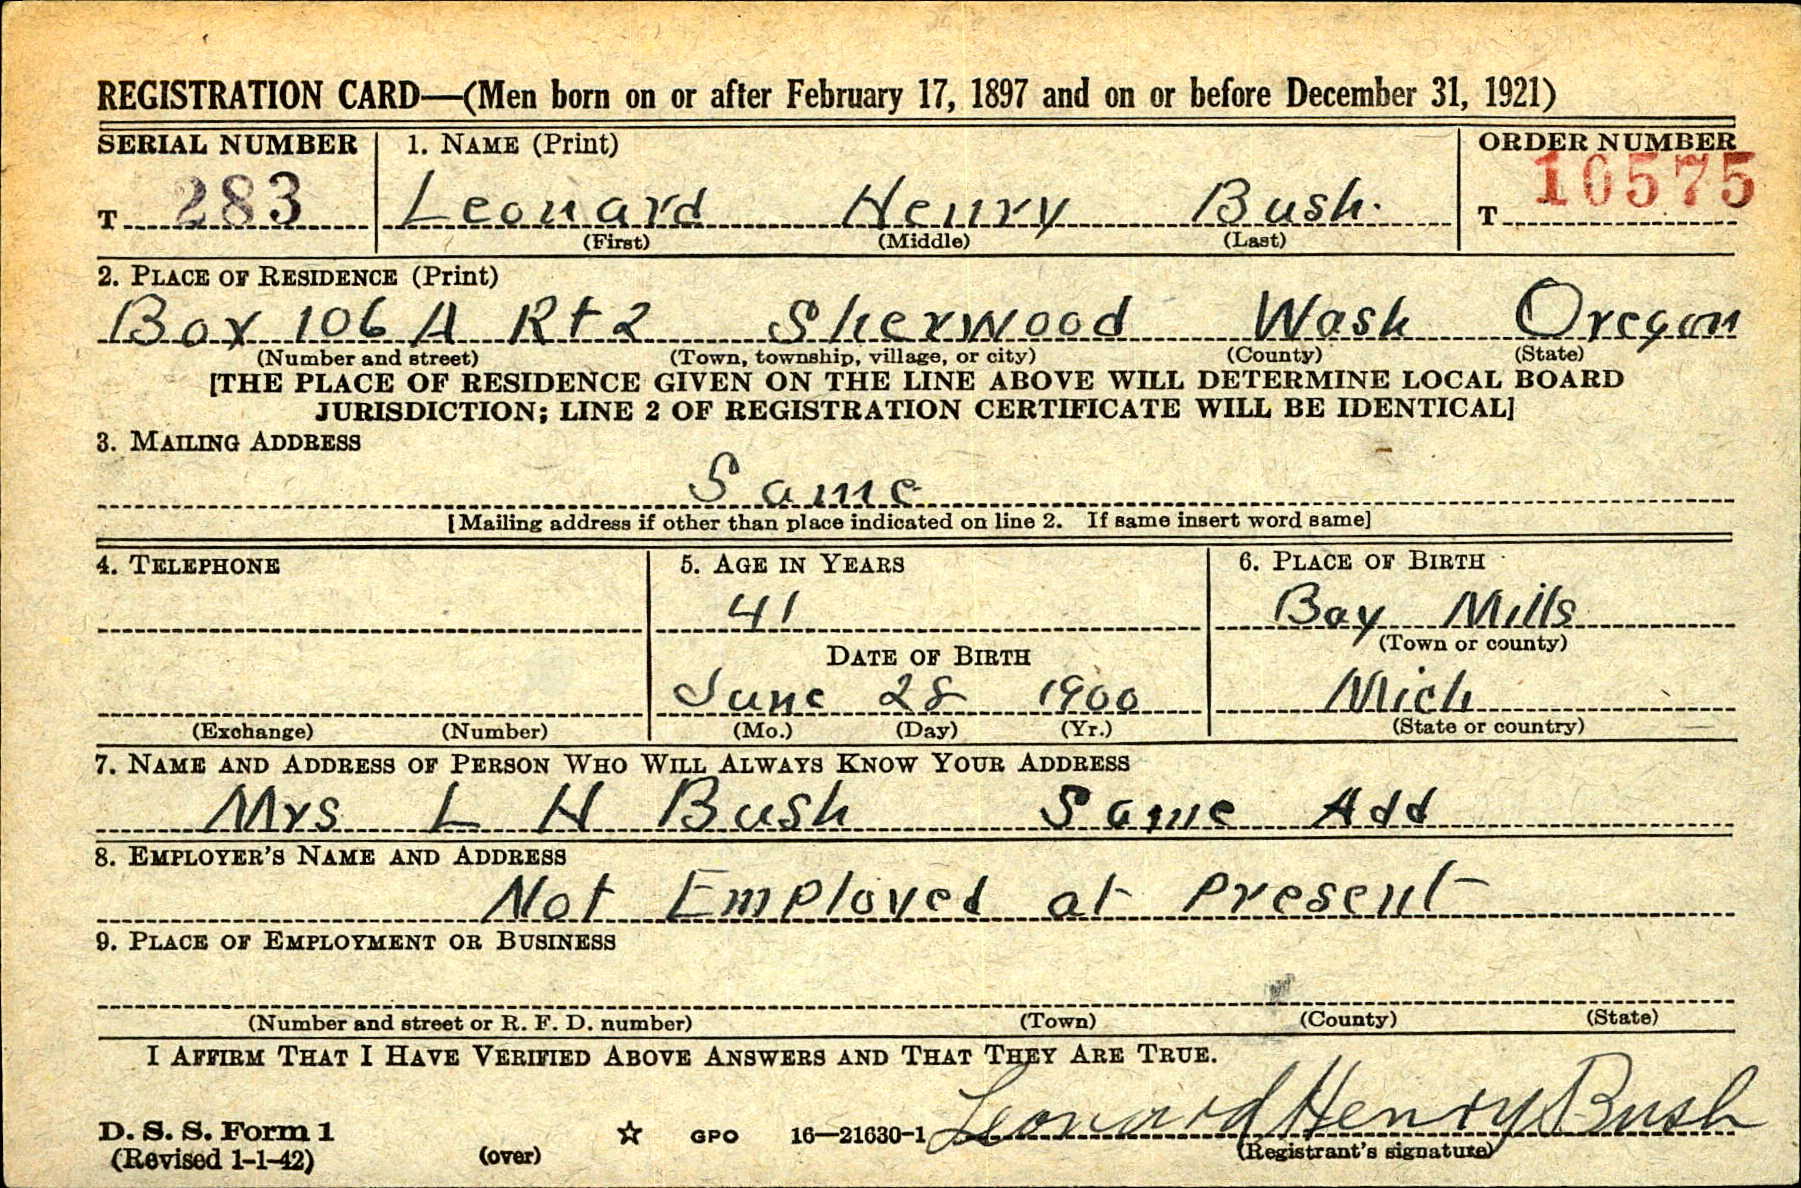 REGISTRATION CARD—(Men born on or after February 17, 1897 and on or before December 31, 1921)
SERIAL NUMBER 1. NAME (Print) ORDER NUMBER
T 283 Leonard Henry Bush. T 10575
(First) (Middle) (Last)
2. PLACE OF RESIDENCE (Print)
Box 106 A Rt 2 Sherwood Wash Oregon
(Number and street) (Town, township, village, or city) (County) (State)
[THE PLACE OF RESIDENCE GIVEN ON THE LINE ABOVE WILL DETERMINE LOCAL BOARD
JURISDICTION; LINE 2 OF REGISTRATION CERTIFICATE WILL BE IDENTICAL]
3. MAILING ADDRESS
Same
[Mailing address if other than place indicated on line 2. If same insert word same]
4. TELEPHONE 5. AGE IN YEARS 6. PLACE OF BIRTH
41 Bay Mills
(Town or county)
DATE OF BIRTH
June 28 1900 Mich
(Exchange) (Number) (Mo.) (Day) (Yr.) (State or country)
7. NAME AND ADDRESS OF PERSON WHO WILL ALWAYS KNOW YOUR ADDRESS
Mrs L H Bush Same Add
8. EMPLOYER'S NAME AND ADDRESS
Not Employed at present
9. PLACE OF EMPLOYMENT OR BUSINESS
(Number and street or R. F. D. number) (Town) (County) (State)
I AFFIRM THAT I HAVE VERIFIED ABOVE ANSWERS AND THAT THEY ARE TRUE.
Leonard Henry Bush
D. S. S. Form 1
(Revised 1-1-42) (over) ☆ GPO 16—21630-1 (Registrant's signature)